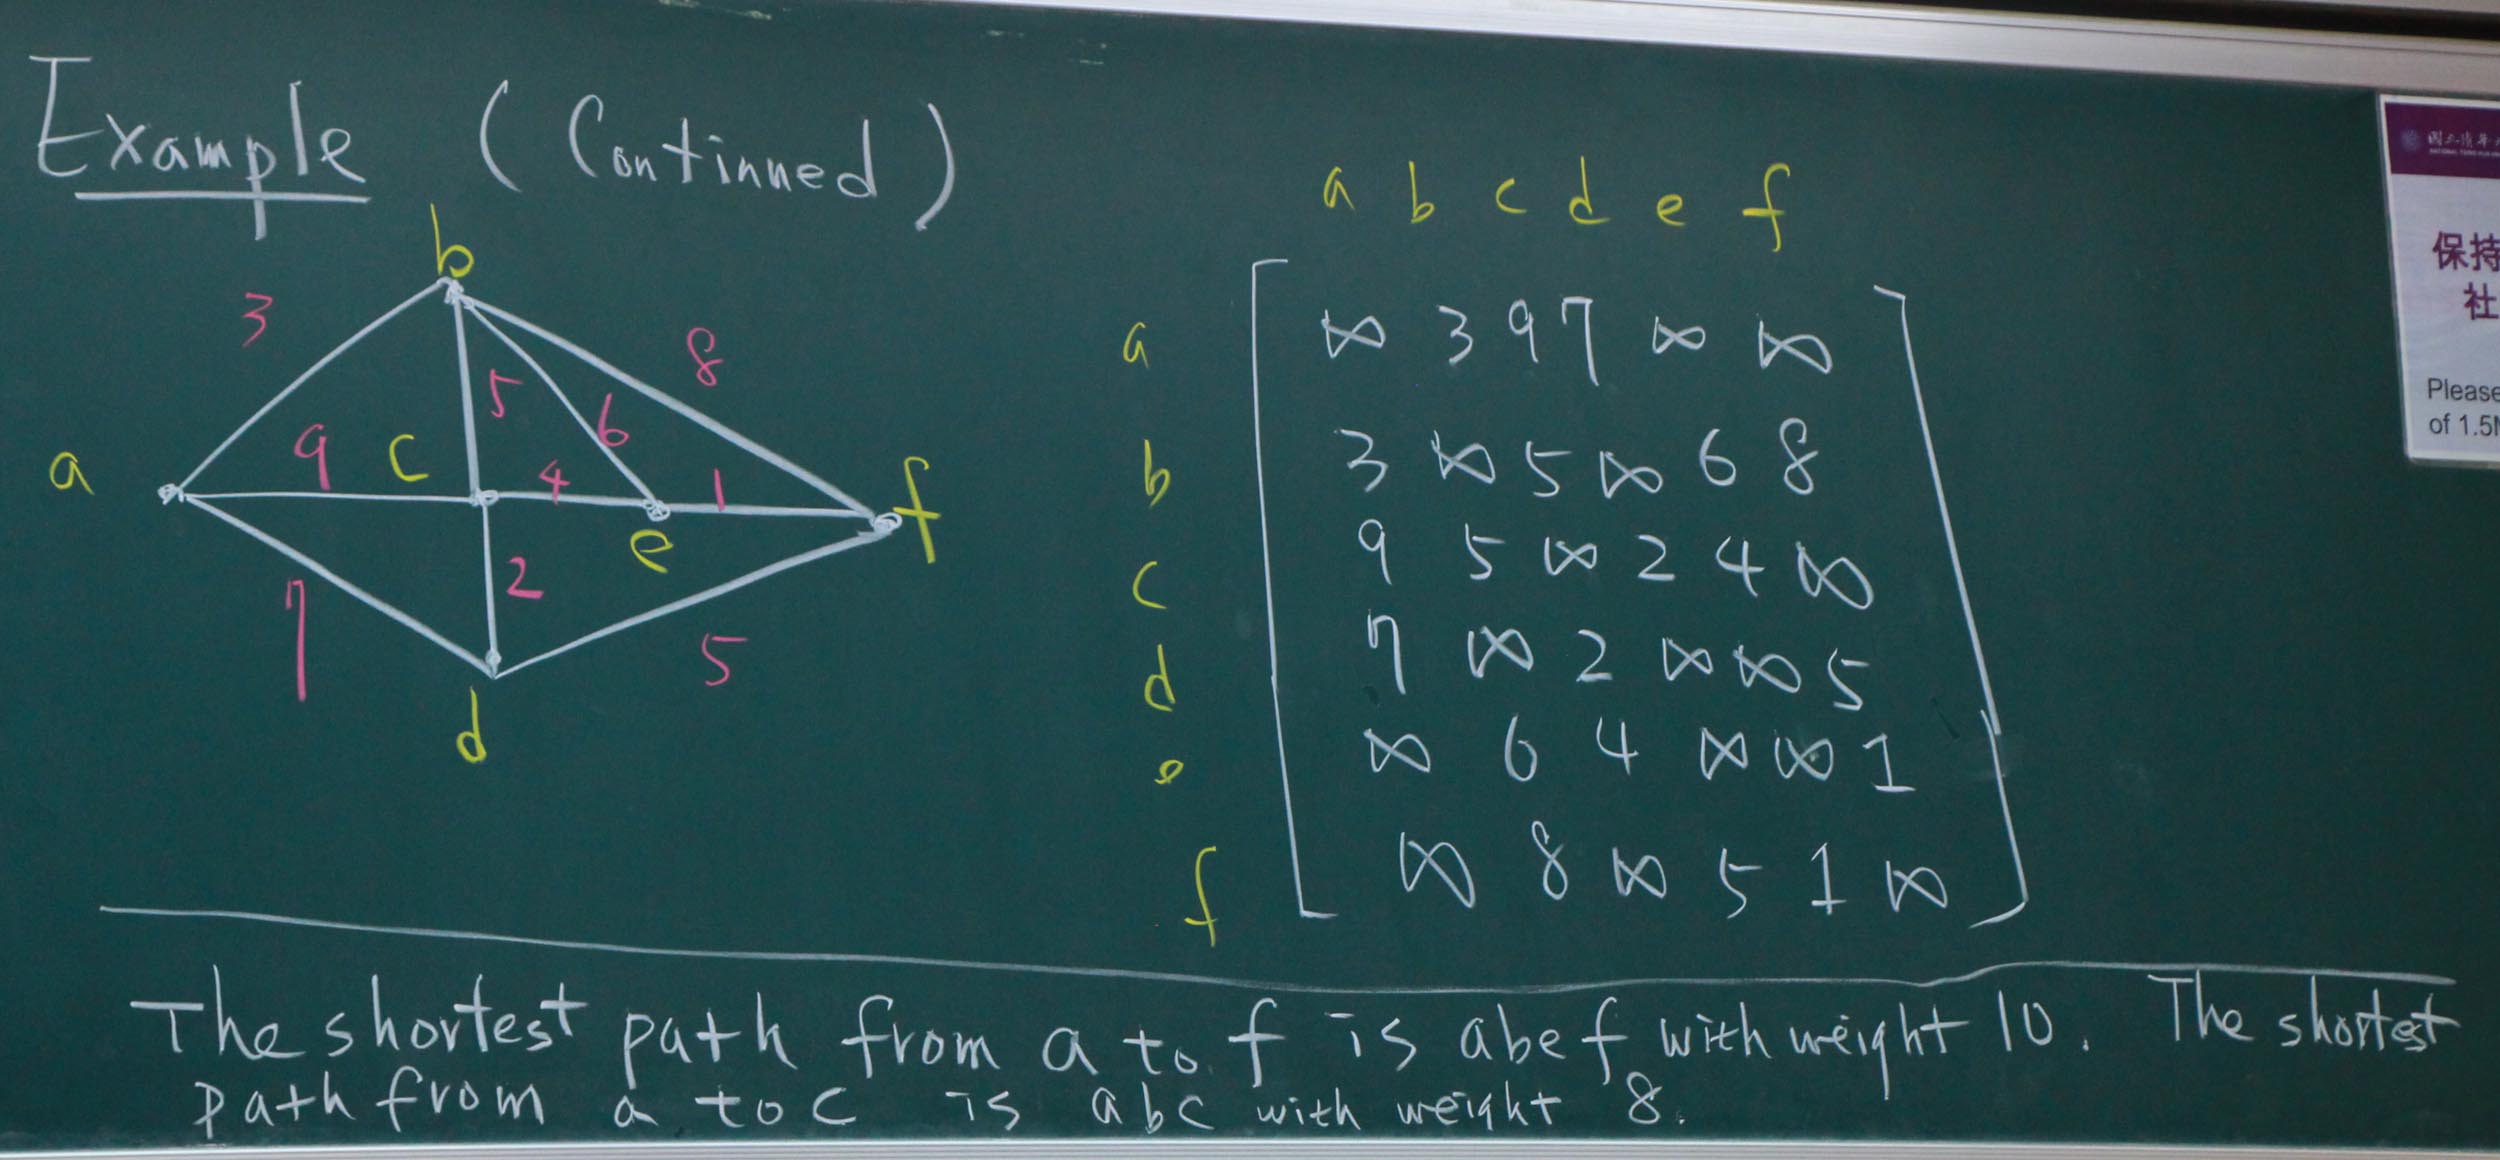 Example (Continued)
a b c d e f
b
3
8
5
6
a
9
c
4
1
f
e
2
7
5
d
a ∞ 3 9 7 ∞ ∞
b 3 ∞ 5 ∞ 6 8
c 9 5 ∞ 2 4 ∞
d 7 ∞ 2 ∞ ∞ 5
e ∞ 6 4 ∞ ∞ 1
f ∞ 8 ∞ 5 1 ∞
The shortest path from a to f is abef with weight 10. The shortest
path from a to c is abc with weight 8.
保持
社
Please
of 1.5M